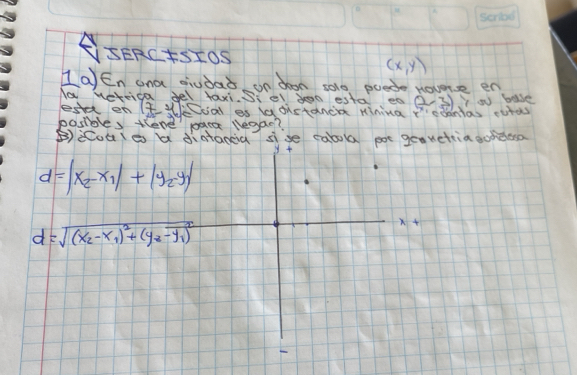 Scribe
EJERCISIOS
(x,y)
1 a) En una ciudad un dron solo puede moverse en
la metrica del taxi. Si el dron esta en y su base
esta en ¿Cual es la distancia minima y cuantas rutas
posibles tiene para llegar?
b) ¿Cual es la distancia si se calcula por geometria
y +
d = |x₂-x₁| + |y₂-y₁|
x +
d = √(x₂-x₁)² + (y₂-y₁)²
-